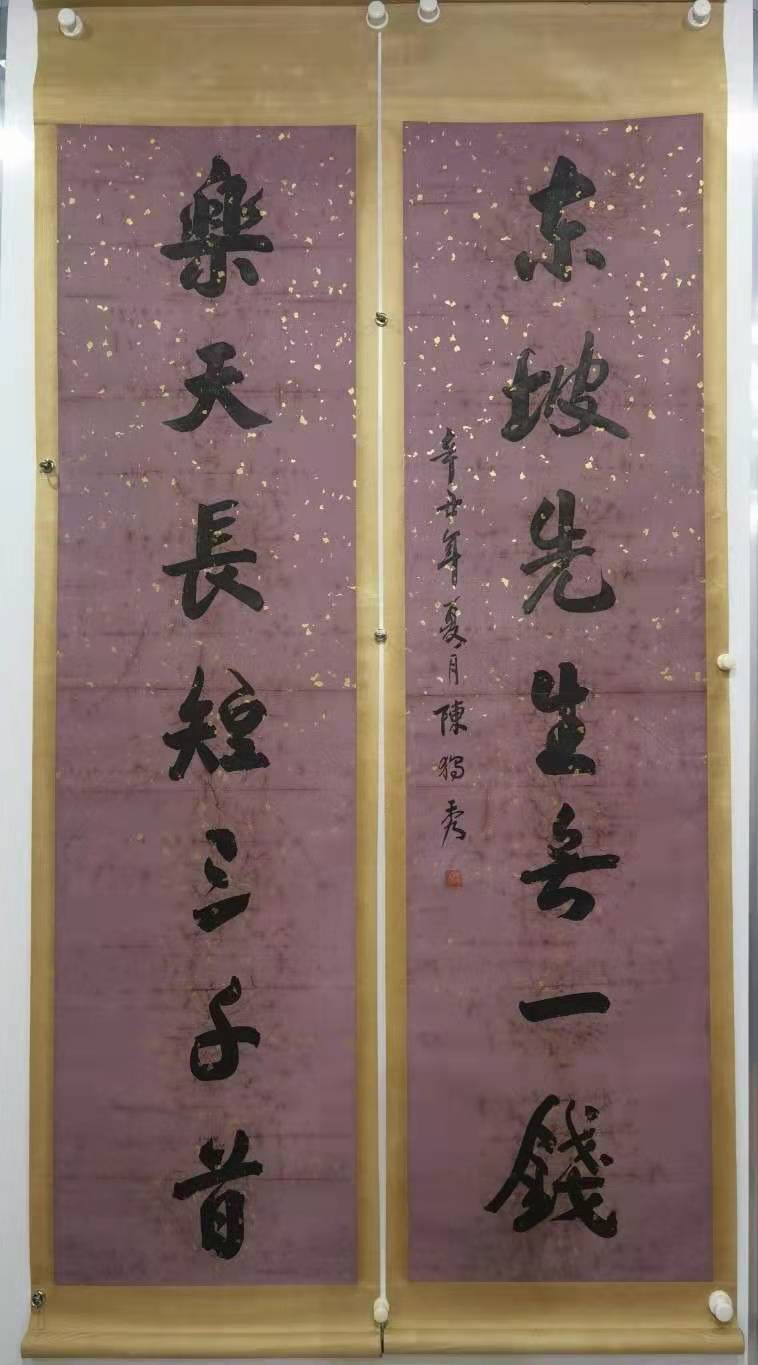 东坡先生無一錢
辛丑年夏月陳獨秀
樂天長短三千首